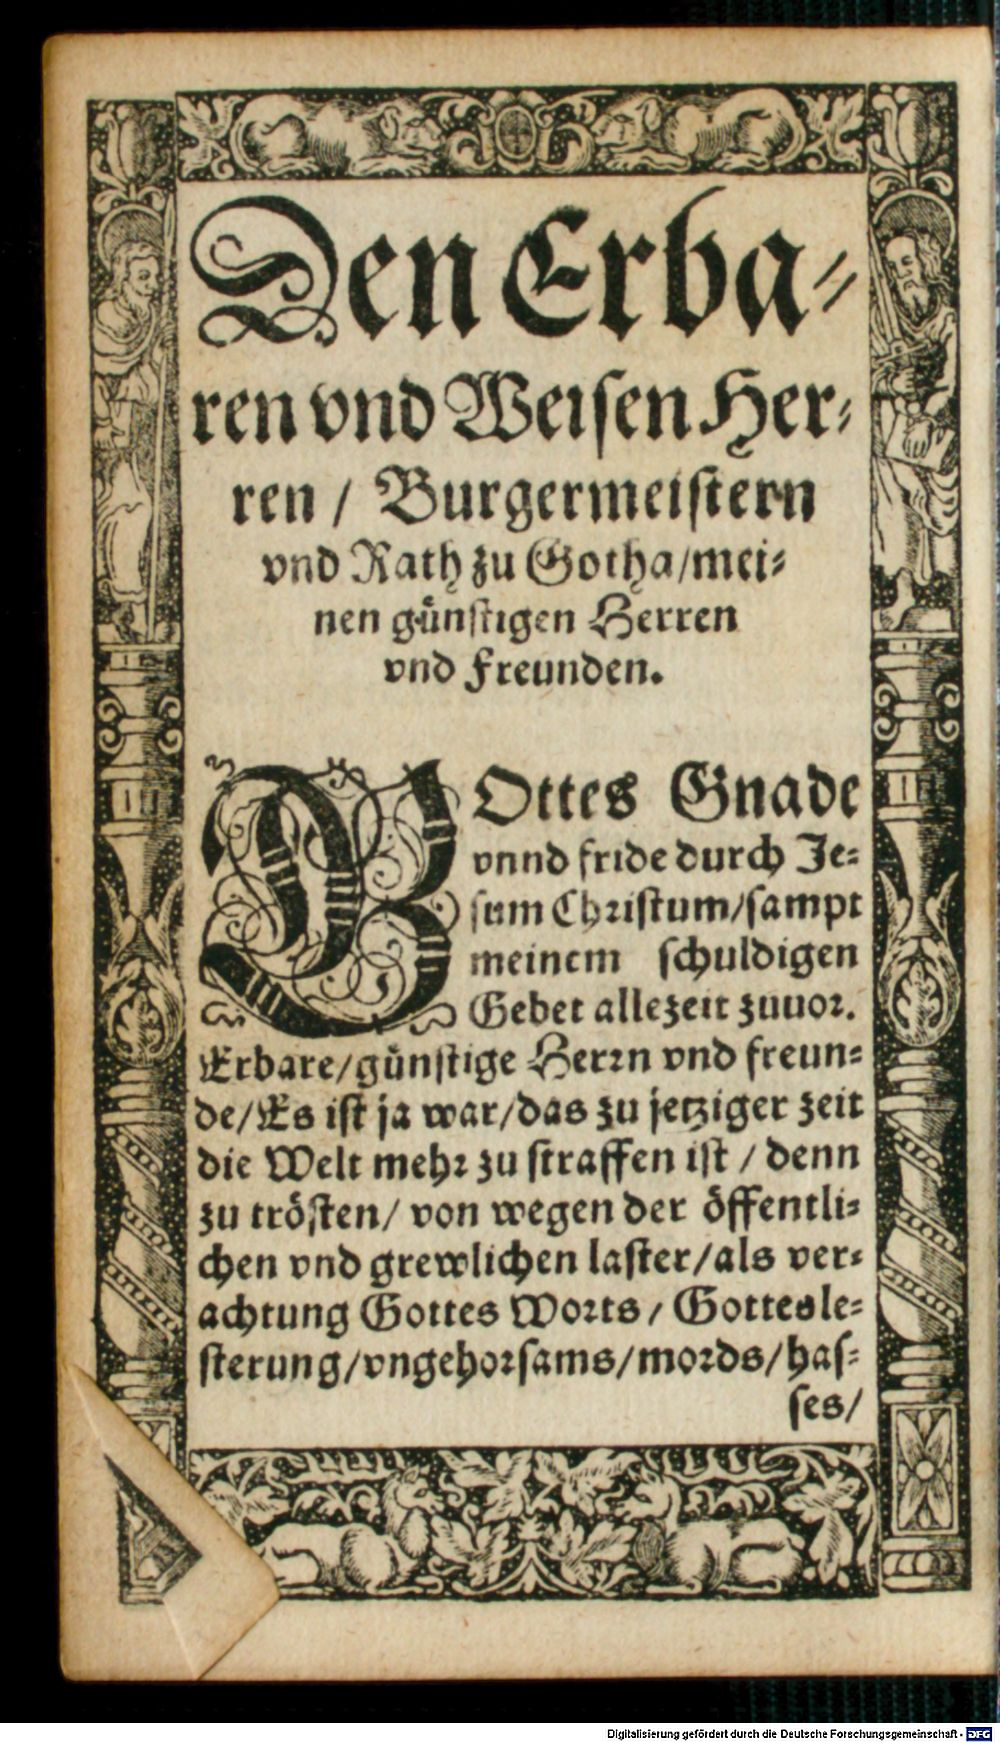 Den Erba-
ren vnd Weisen Her-
ren / Burgermeistern
vnd Rath zu Gotha/mei-
nen günstigen Herren
vnd Freunden.
GOttes Gnade
vnnd fride durch Je-
sum Christum/sampt
meinem schuldigen
Gebet allezeit zuuor.
Erbare/günstige Herrn vnd freun-
de/Es ist ja war/das zu jetziger zeit
die Welt mehr zu straffen ist / denn
zu trösten/ von wegen der öffentli-
chen vnd grewlichen laster/als ver-
achtung Gottes Worts / Gottesle-
sterung/vngehorsams/mords/has-
ses/
Digitalisierung gefördert durch die Deutsche Forschungsgemeinschaft - DFG